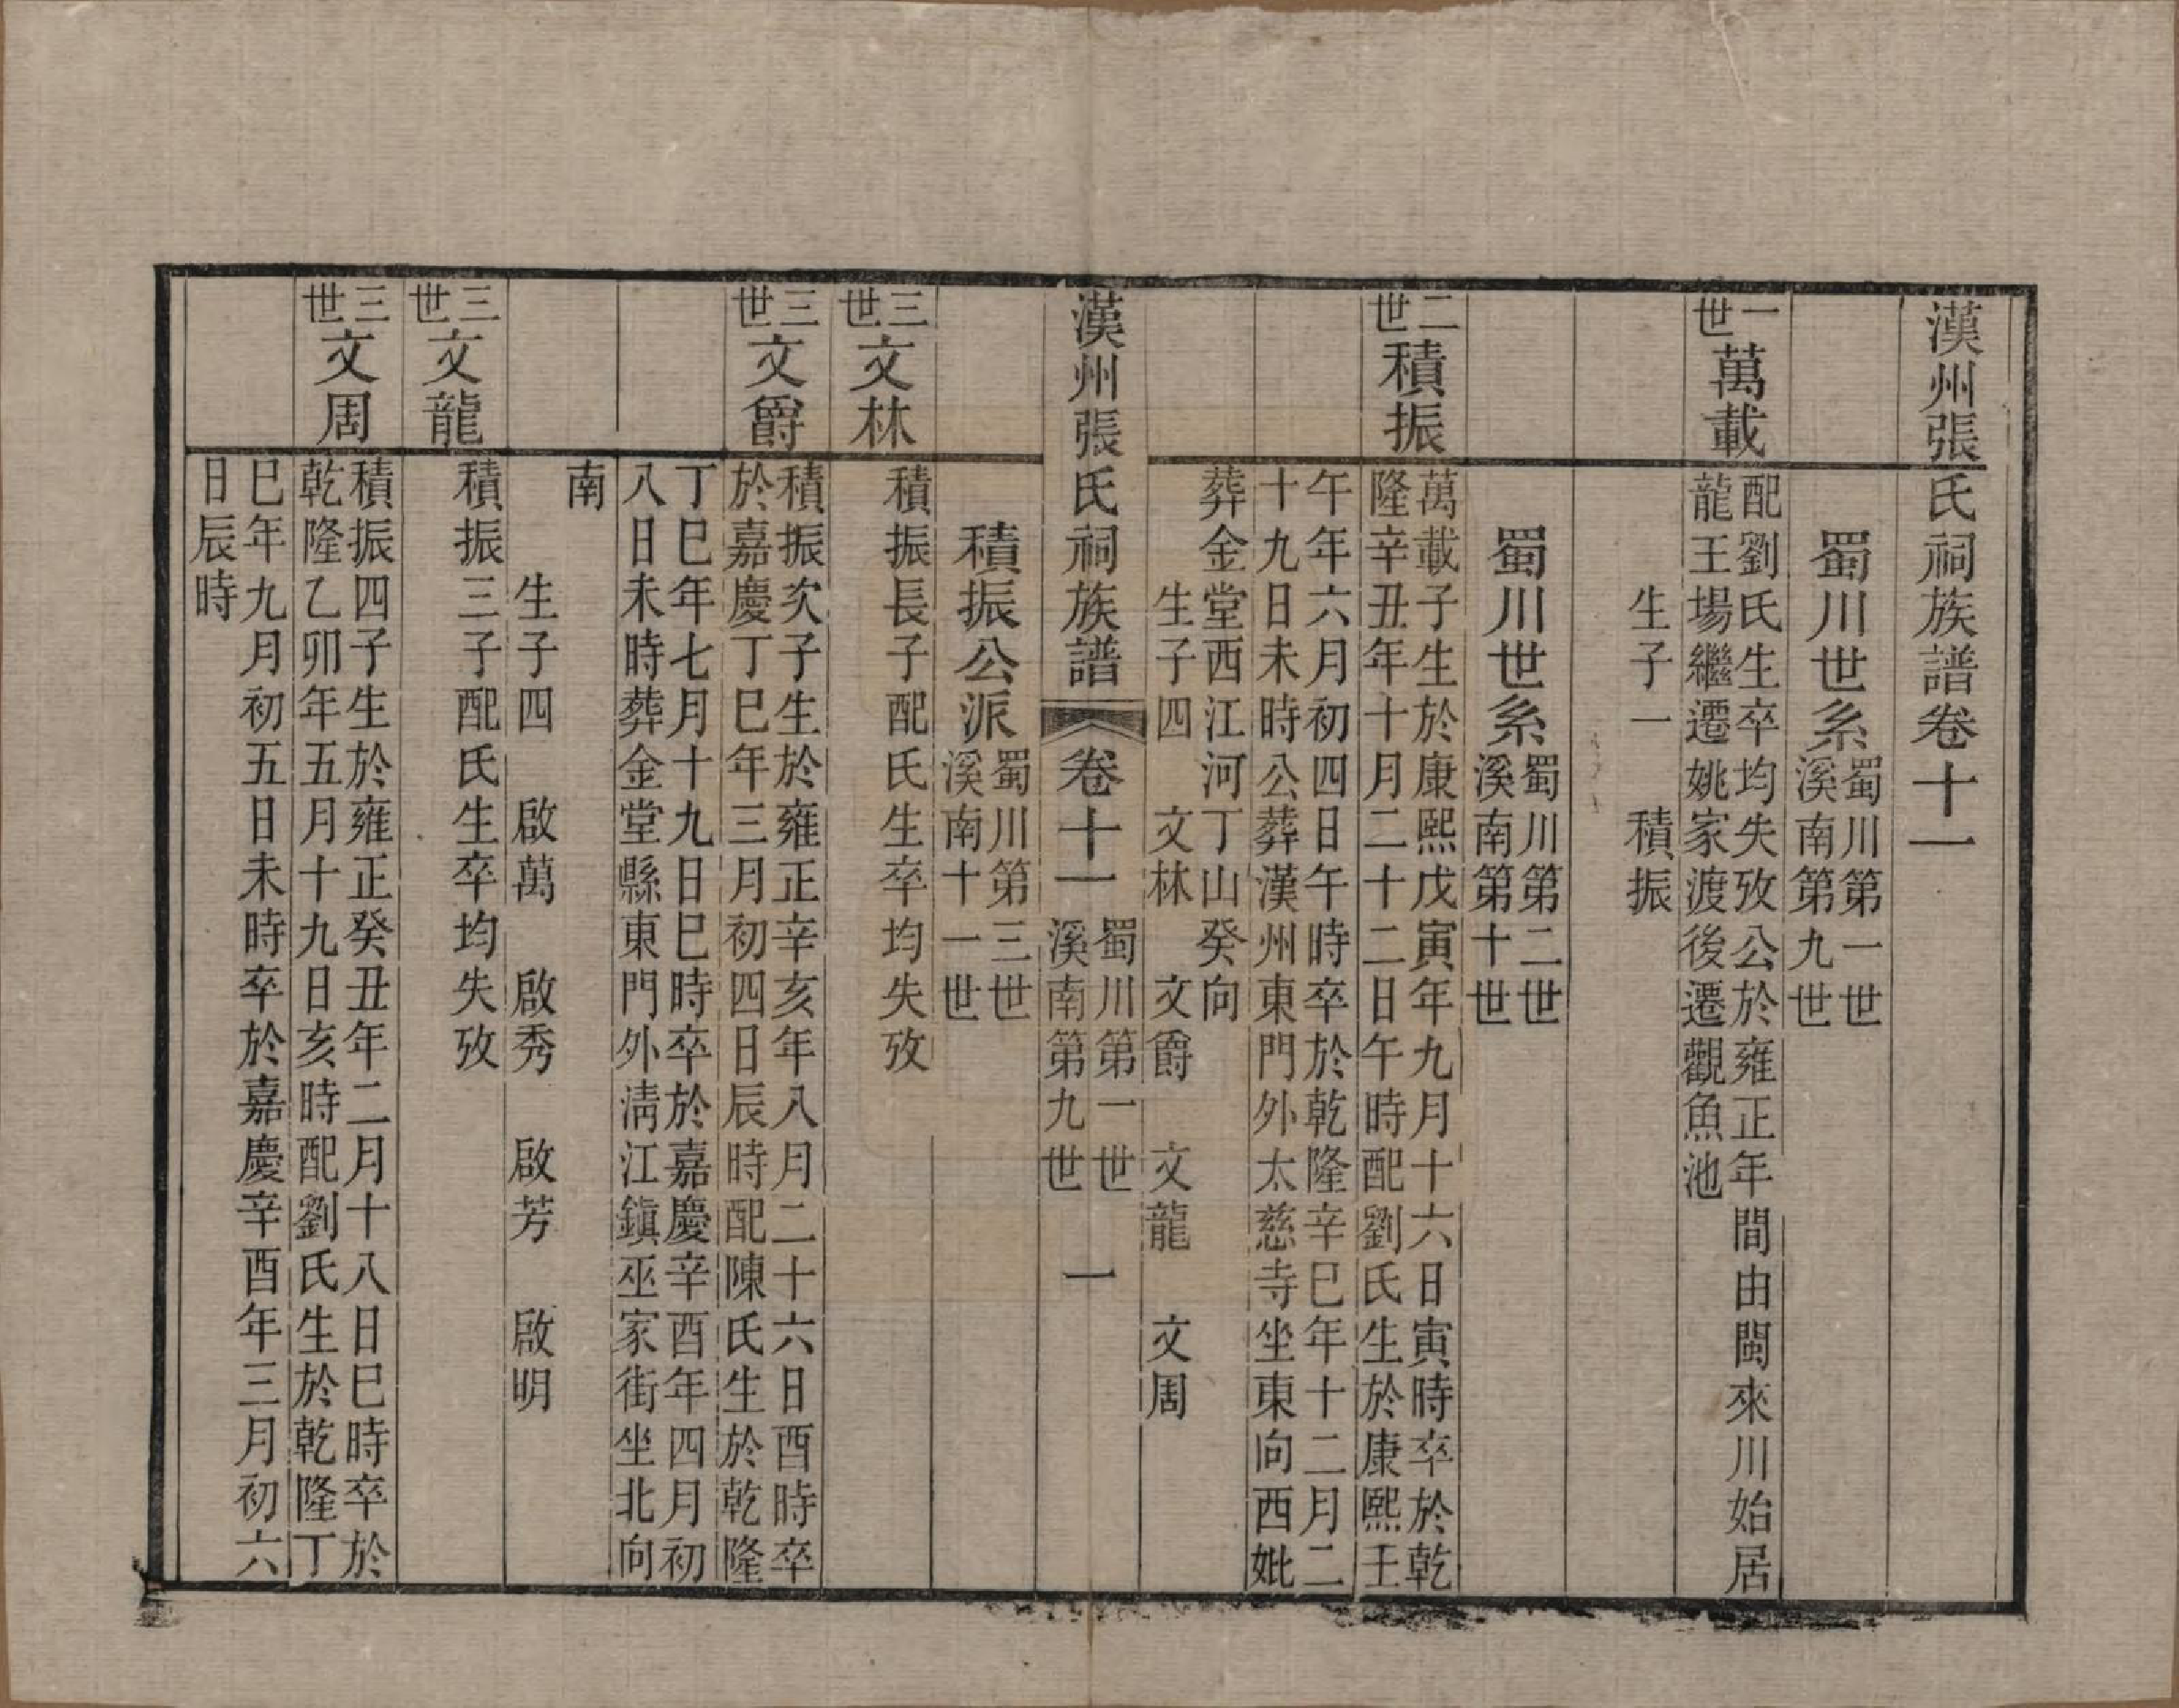 漢州張氏祠族譜卷十一
蜀川世系
蜀川第一世
溪南第九世
一世
萬載
配劉氏生卒均失攷公於雍正年間由閩來川始居
龍王場繼遷姚家渡後遷觀魚池
生子一 積振
蜀川世系
蜀川第二世
溪南第十世
二世
積振
萬載子生於康熙戊寅年九月十六日寅時卒於乾
隆辛丑年十月二十二日午時配劉氏生於康熙壬
午年六月初四日午時卒於乾隆辛巳年十二月二
十九日未時公葬漢州東門外太慈寺坐東向西妣
葬金堂西江河丁山癸向
生子四 文林 文爵 文龍 文周
漢州張氏祠族譜 卷十一
蜀川第一世
溪南第九世
一
積振公派
蜀川第三世
溪南十一世
三世
文林
積振長子配氏生卒均失攷
三世
文爵
積振次子生於雍正辛亥年八月二十六日酉時卒
於嘉慶丁巳年三月初四日辰時配陳氏生於乾隆
丁巳年七月十九日巳時卒於嘉慶辛酉年四月初
八日未時葬金堂縣東門外淸江鎭巫家街坐北向
南
生子四 啟萬 啟秀 啟芳 啟明
三世
文龍
積振三子配氏生卒均失攷
三世
文周
積振四子生於雍正癸丑年二月十八日巳時卒於
乾隆乙卯年五月十九日亥時配劉氏生於乾隆丁
巳年九月初五日未時卒於嘉慶辛酉年三月初六
日辰時